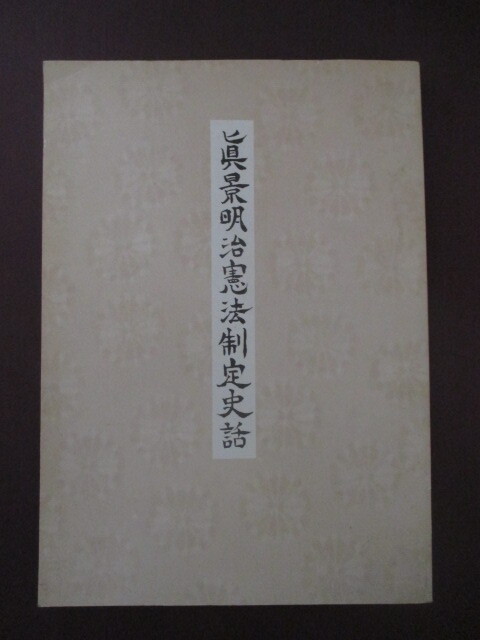 眞景明治憲法制定史話